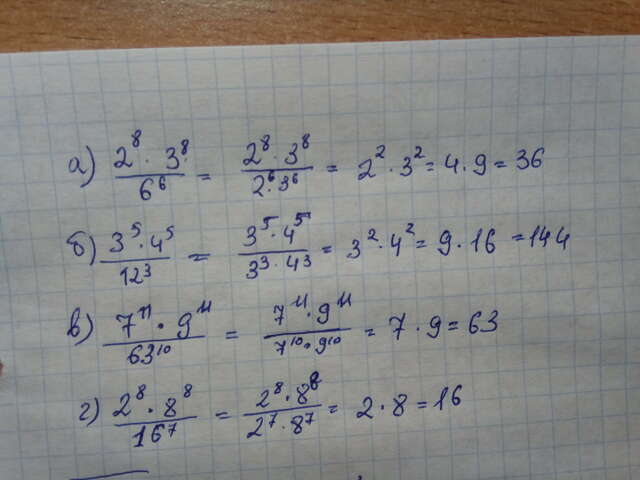 а) 2⁸ · 3⁸ / 6⁶ = 2⁸ · 3⁸ / 2⁶ · 3⁶ = 2² · 3² = 4 · 9 = 36
б) 3⁵ · 4⁵ / 12³ = 3⁵ · 4⁵ / 3³ · 4³ = 3² · 4² = 9 · 16 = 144
в) 7¹¹ · 9¹¹ / 63¹⁰ = 7¹¹ · 9¹¹ / 7¹⁰ · 9¹⁰ = 7 · 9 = 63
г) 2⁸ · 8⁸ / 16⁷ = 2⁸ · 8⁸ / 2⁷ · 8⁷ = 2 · 8 = 16